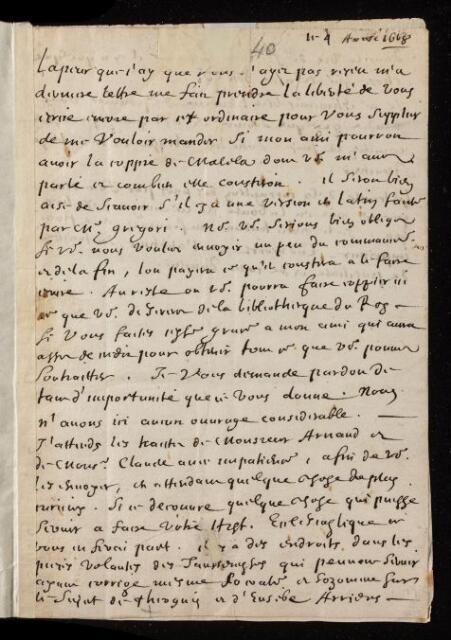 40
le 4 Avril 1668
La peur que j'ay que vous n'ayez pas receu ma
derniere lettre me fait prendre la liberté de vous
écrire encore par cet ordinaire pour vous supplier
de me vouloir mander si mon ami pourroit
avoir la coppie de Malela dont vs. m'avez
parlé et combien elle cousteroit. Il seroit bien
aise de sçavoir s'il y a une version en latin faite
par Mr. gregori. Ns. vs. serions bien obligez
si vs. nous vouliez envoyer un peu du commancemt.
et de la fin, l'on payera ce qu'il coustera à le faire
écrire. Au reste on vs. pourra faire coppier ici
ce que vs. desirerez de la bibliotheque du Roy
si vous faites cette grace a mon ami qui aura
assez de credit pour obtenir tout ce que vs. pouvez
souhaitter. Je vous demande pardon de
tant d'importunité que je vous donne. Nous
n'avons ici aucun ouvrage considerable.
J'attends les traitez de Monsieur Arnaud et
de Monsr. Claude avec impatience, afin de vs.
les envoyer, en attendant quelque chose de plus
curieux. Si je decouvre quelque chose qui puisse
servir a faire votre Hist. Ecclesiastique je
vous en feray part. il y a des endroits dans les
pieces volantes des qui peuvent servir
ayant corrigé mesme Socrate et Sozomene sur
le sujet de et d'Eusebe Arriens